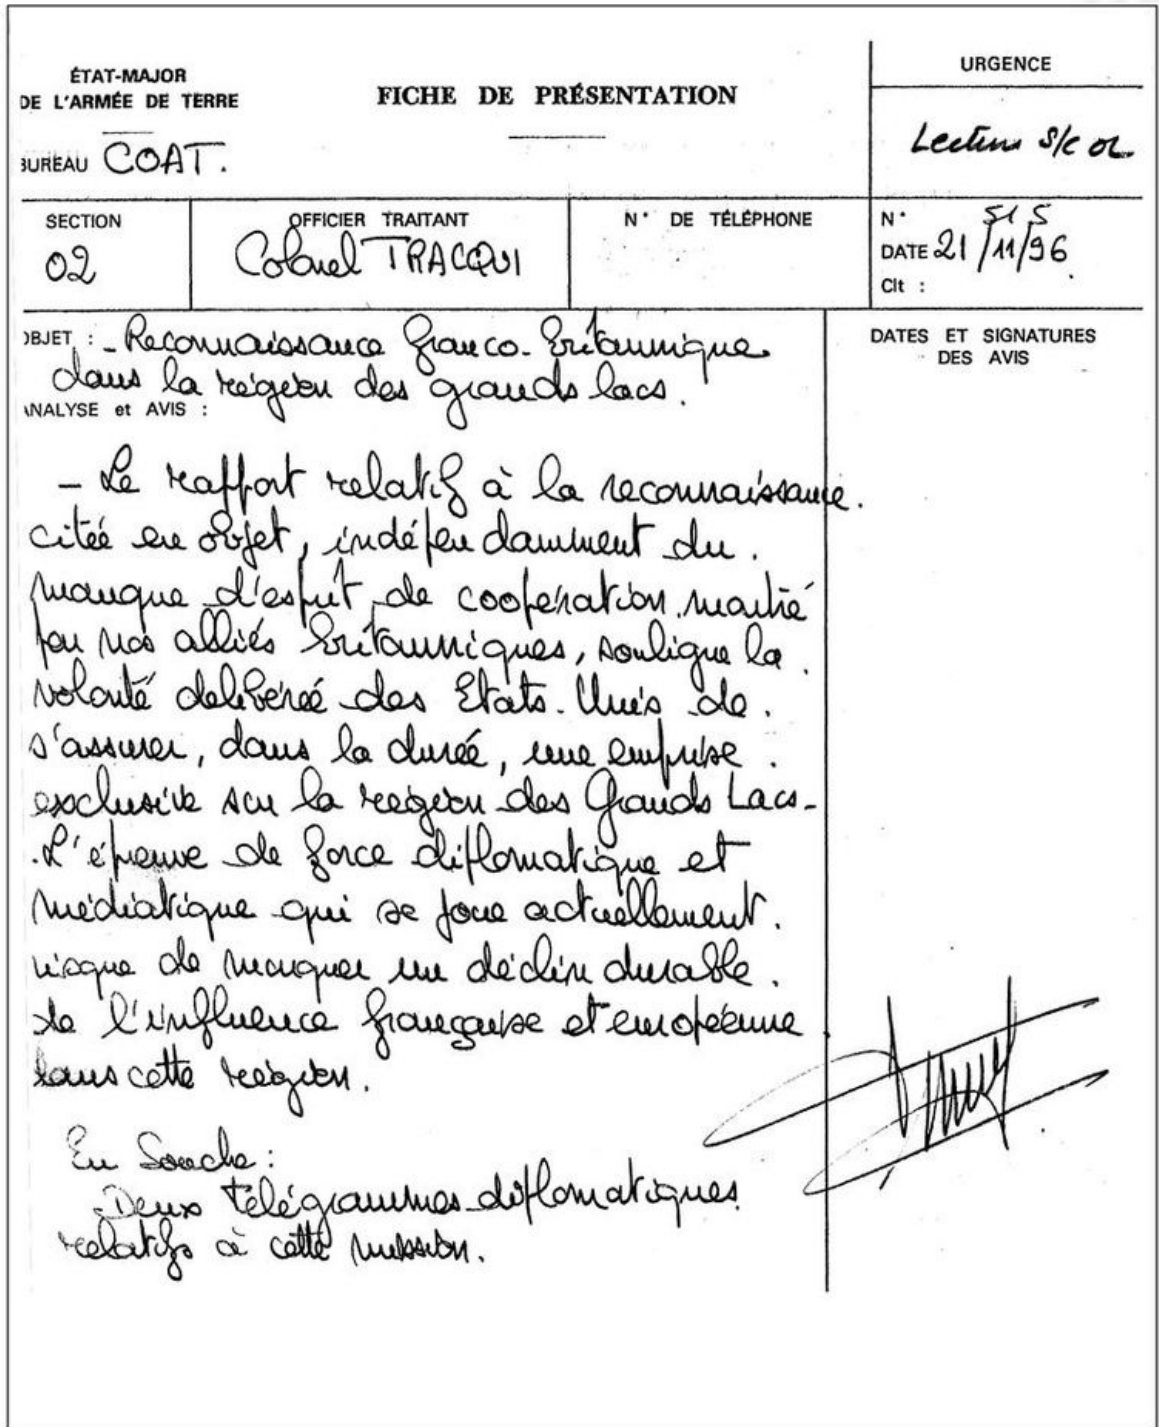 ÉTAT-MAJOR
DE L'ARMÉE DE TERRE
FICHE DE PRÉSENTATION
URGENCE
BUREAU COAT.
SECTION
02
OFFICIER TRAITANT
Colonel TRACQUI
N° DE TÉLÉPHONE
N° 515
DATE 21/11/96
Clt :
OBJET : - Reconnaissance franco-britannique
dans la région des grands lacs.
ANALYSE et AVIS :
DATES ET SIGNATURES
DES AVIS
- Le rapport relatif à la reconnaissance
citée en objet, indépendamment du
manque d'esprit de coopération montré
par nos alliés britanniques, souligne la
volonté délibérée des Etats-Unis de
s'assurer, dans la durée, une emprise
exclusive sur la région des Grands Lacs-
.L'épreuve de force diplomatique et
médiatique qui se joue actuellement
risque de marquer un déclin durable
de l'influence française et européenne
dans cette région.
En Souche :
- Deux télégrammes diplomatiques
relatifs à cette mission.